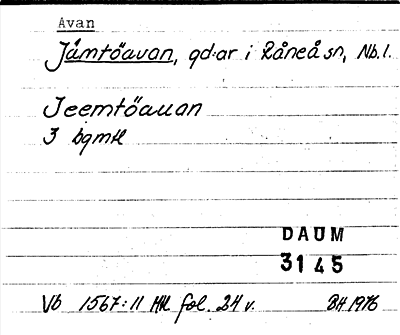 Avan
Jämtöavan, gd:ar i Råneå sn, Nb.l.
Jeemtöauan
3 bgmtl
DAUM
3145
Vb 1567:11 Mtl fol. 24 v. BH 1976